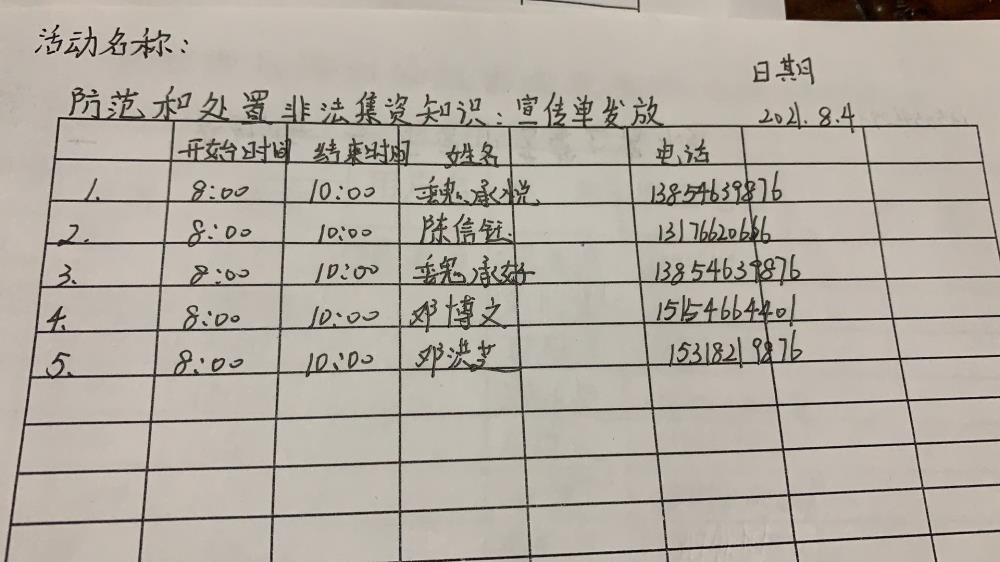 活动名称:
日期
防范和处置非法集资知识:宣传单发放 2021.8.4
开始时间 结束时间 姓名 电话
1. 8:00 10:00 承悦 13854639876
2. 8:00 10:00 陈信钰 13176620666
3. 8:00 10:00 承好 13854639876
4. 8:00 10:00 邓博文 15154664401
5. 8:00 10:00 邓洪艺 15318219876